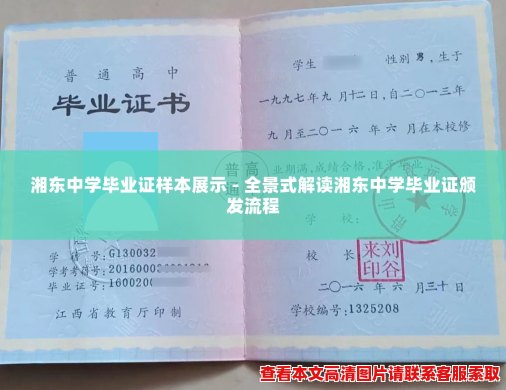 普通高中
毕业证书
学生
性别 男，生于
一九九七年九月十二日，自二〇一三年
九月至二〇一六年六月在本校修
业期满，成绩合格，准予毕业。
普高
湘东中学毕业证样本展示 - 全景式解读湘东中学毕业证颁
发流程
学籍号:G130032
学考考籍号:2016000
毕业证号:160020
江西省教育厅印制
校
校长:
刘谷来印
二〇一六年六月三十日
学校编号:1325208
查看本文高清图片请联系客服索取